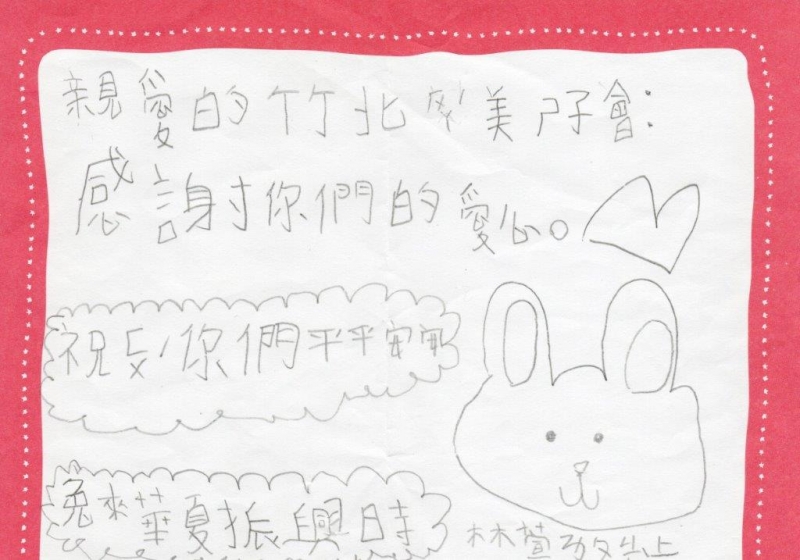 親愛的竹北美好會:
感謝你們的愛心。
祝你們平平安安
兔來華夏振興時
林萱